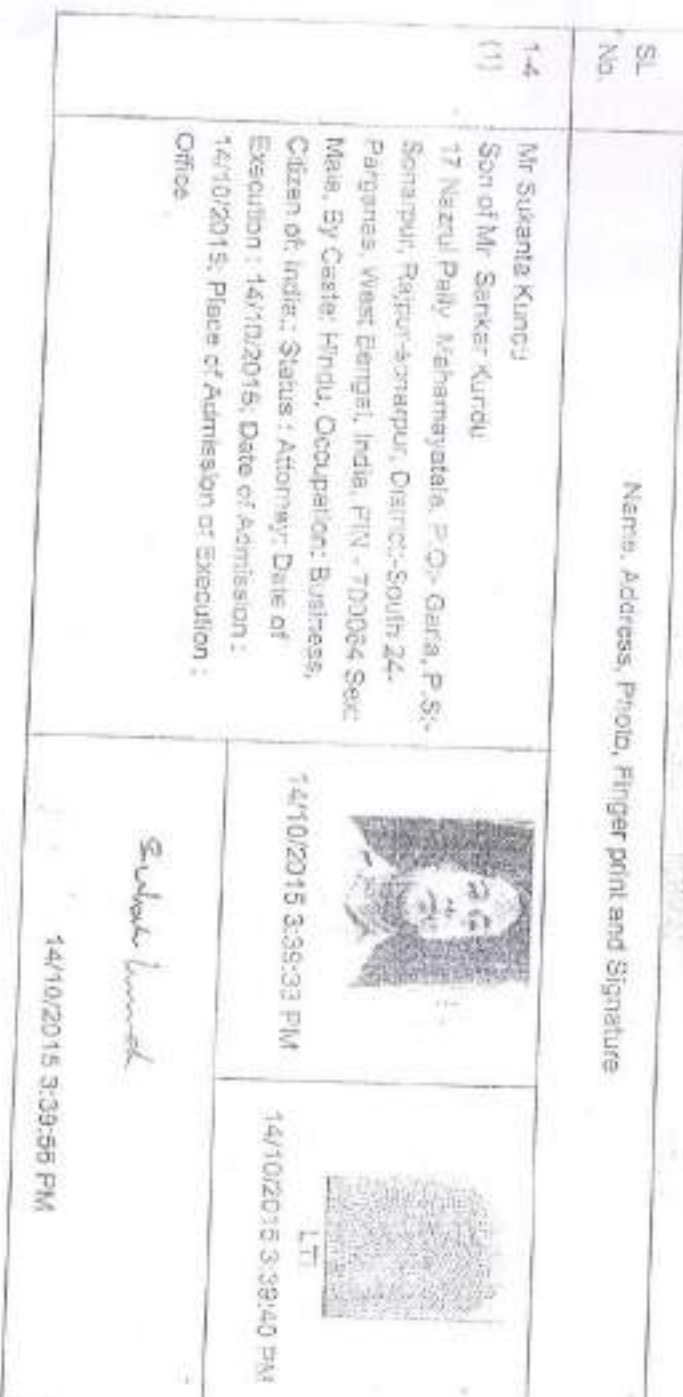 SL
No.
Name, Address, Photo, Finger print and Signature
1-4
(1)
Mr Sukanta Kundu
Son of Mr. Sankar Kundu
17 Nazrul Pally Mahamayatala, P.O:- Garia, P.S:-
Sonarpur, Rajpur-sonarpur, District:-South 24-
Parganas, West Bengal, India, PIN - 700084 Sex:
Male, By Caste: Hindu, Occupation: Business,
Citizen of: India,; Status : Attorney; Date of
Execution : 14/10/2015; Date of Admission :
14/10/2015; Place of Admission of Execution :
Office
14/10/2015 3:39:33 PM
LTI
14/10/2015 3:39:40 PM
14/10/2015 3:39:56 PM